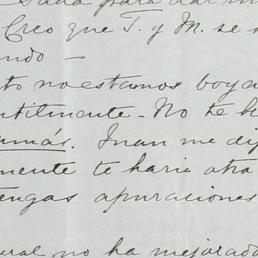 para dar
Creo que T. y M. se
ndo —
to no estamos boya
ntilmente. No te
más. Juan me di
mente te haria otra
engas apuraciones
ual no ha mejorado